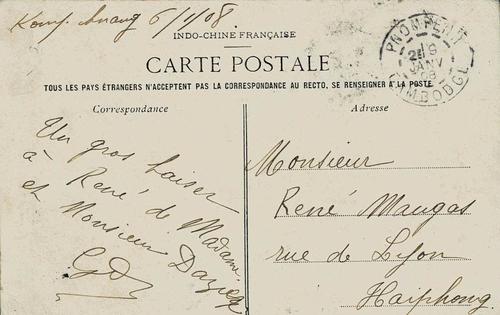 Komp. Chnang 6/1/08.
INDO-CHINE FRANÇAISE
CARTE POSTALE
TOUS LES PAYS ÉTRANGERS N'ACCEPTENT PAS LA CORRESPONDANCE AU RECTO, SE RENSEIGNER A LA POSTE
PNOMPENH
JANV
08
CAMBODGE
Correspondance
Un gros baiser
à René de Madame
et Monsieur
Adresse
Monsieur
René Maugas
rue de Lyon
Haiphong.